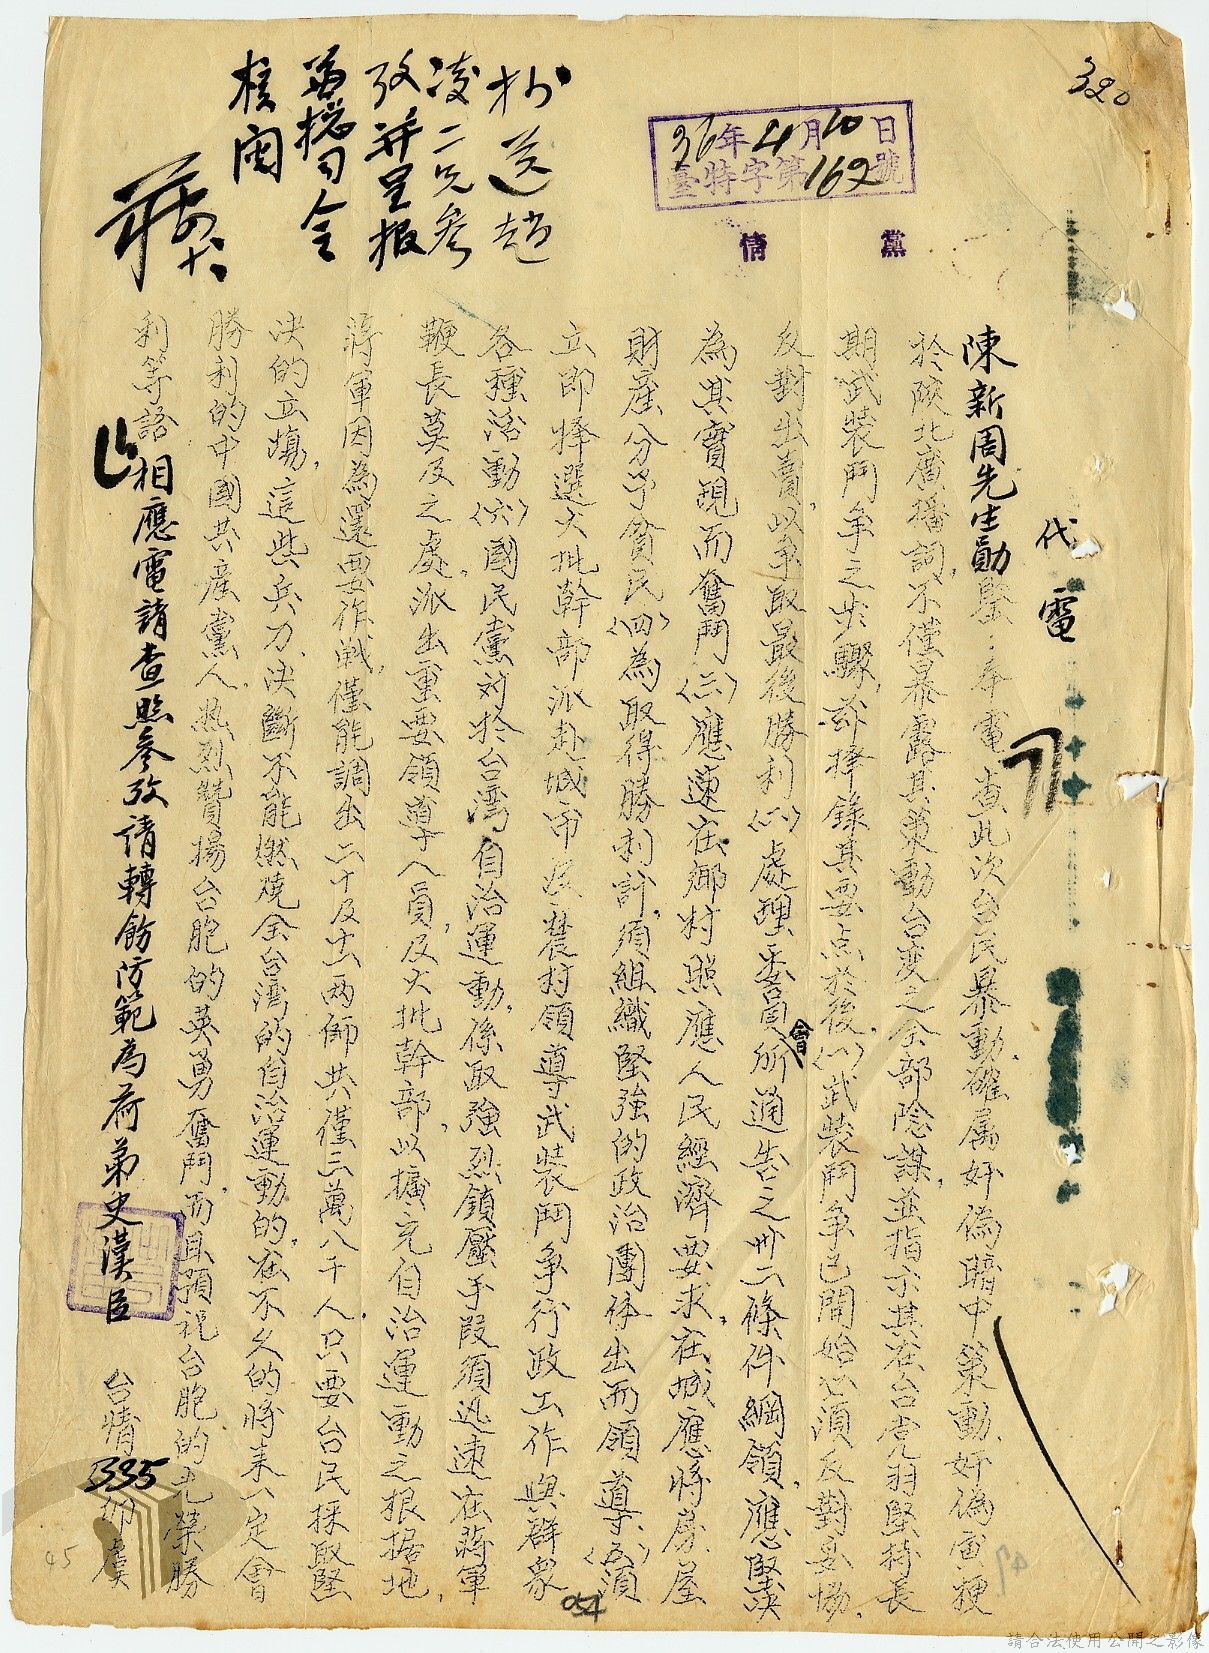 320
36年4月10日
臺特字第162號
黨情
抄送趙
凌二兄參
攷并呈報
總司令
核閱
代電
陳新周先生勛鑒:奉電查此次台民暴動確屬奸偽暗中策動奸偽
於陝北廣播詞,不僅暴露其策動台變之全部陰謀,並指示其在台党羽堅持長
期武裝鬥爭之步驟,茲擇錄其要点於後,(一)武裝鬥爭已開始必須反對妥協,
反對出賣,以爭取最後勝利(二)處理委員會所通告之卅二條件綱領,應堅決
為其實現而奮鬥(三)應速在鄉村照應人民經濟要求,在城應將房屋
財產分予貧民(四)為取得勝利計,須組織堅強的政治團体出而領導,(五)須
立即擇選大批幹部派赴城市及農村領導武裝鬥爭行政工作與群众
各種活動(六)國民黨对於台灣自治運動,係取強烈鎮壓手段須迅速在蔣軍
鞭長莫及之處,派出重要領導人員,及大批幹部,以擴充自治運動之根据地,
蔣軍因為還要作戰,僅能調出二十及廿一两師共僅三萬八千人,只要台民採取堅
決的立場,這些兵力,決斷不能燃燒全台灣的自治運動的,在不久的將来一定會
勝利的中國共產黨人,热烈贊揚台胞的英勇奮鬥,而且預祝台胞的光榮勝
利等語相應電請查照參攷請轉飭防範為荷弟史漢臣
台情
335
卯虞
054
45
請合法使用公開之影像